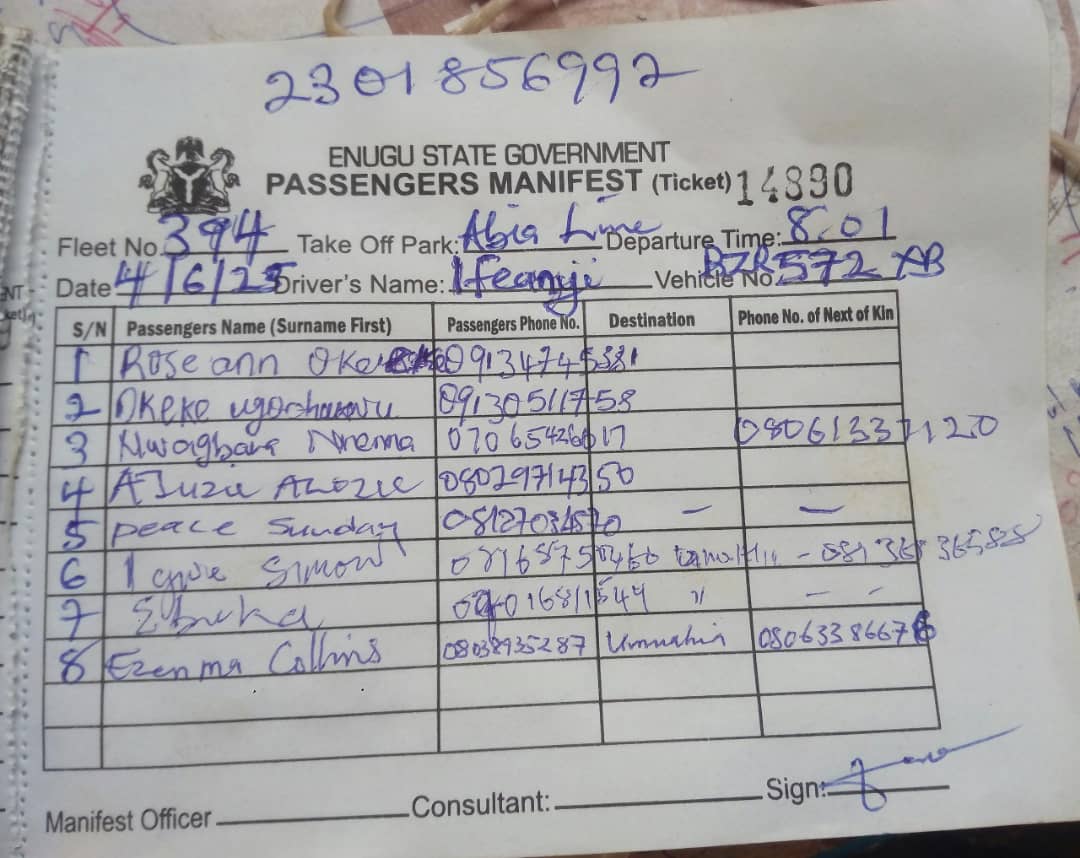 2301856992
ENUGU STATE GOVERNMENT
PASSENGERS MANIFEST (Ticket) 14890
Fleet No. 394 Take Off Park: Abia Line Departure Time: 8.01
Date 4/6/25 Driver's Name: Ifeanyi Vehicle No. BZR572 AB
S/N Passengers Name (Surname First) Passengers Phone No. Destination Phone No. of Next of Kin
1 Roseann Oke
2 Okeke 09130511758
3 Nwagbara Nnenna 07065426617 08061337120
4 AJuzie Alozie 08029714350
5 peace Sunday - -
6 Simon - 08136836588
7 Ebuka " - -
8 Ezenma Collins 08038935287 Umuahia
Manifest Officer Consultant: Sign: